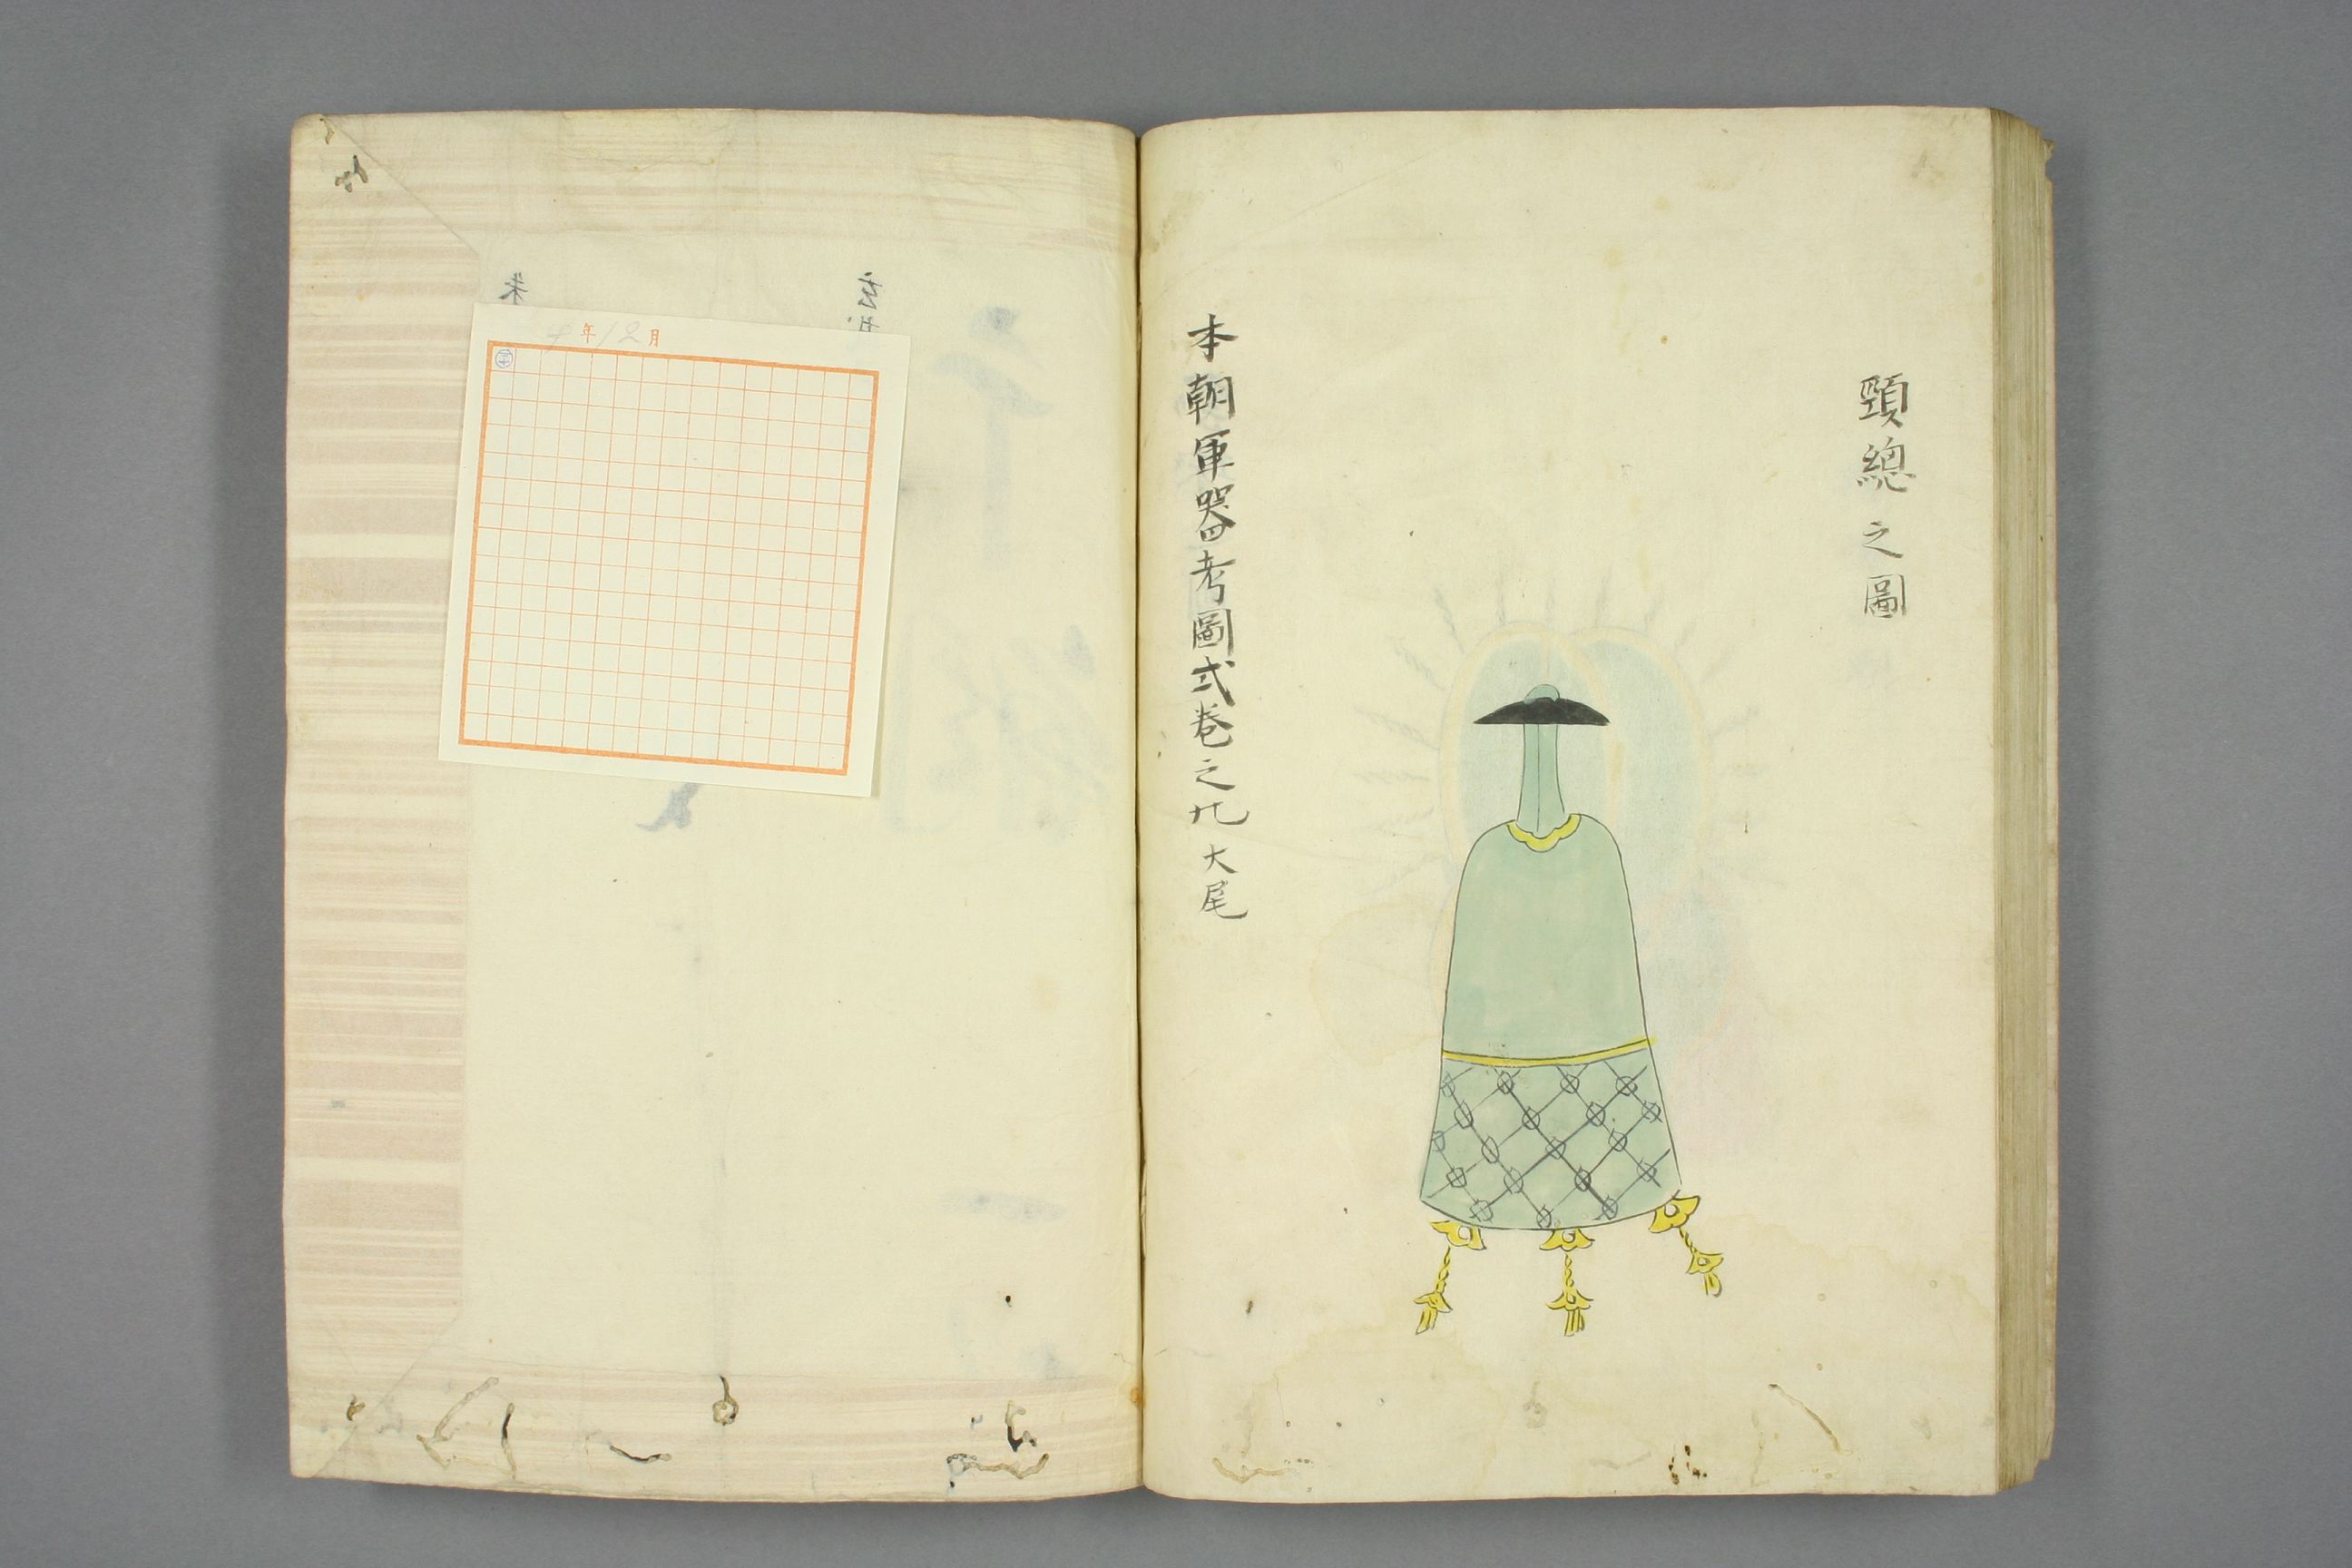 頸總之圖
本朝軍器考圖式卷之九大尾
年12月